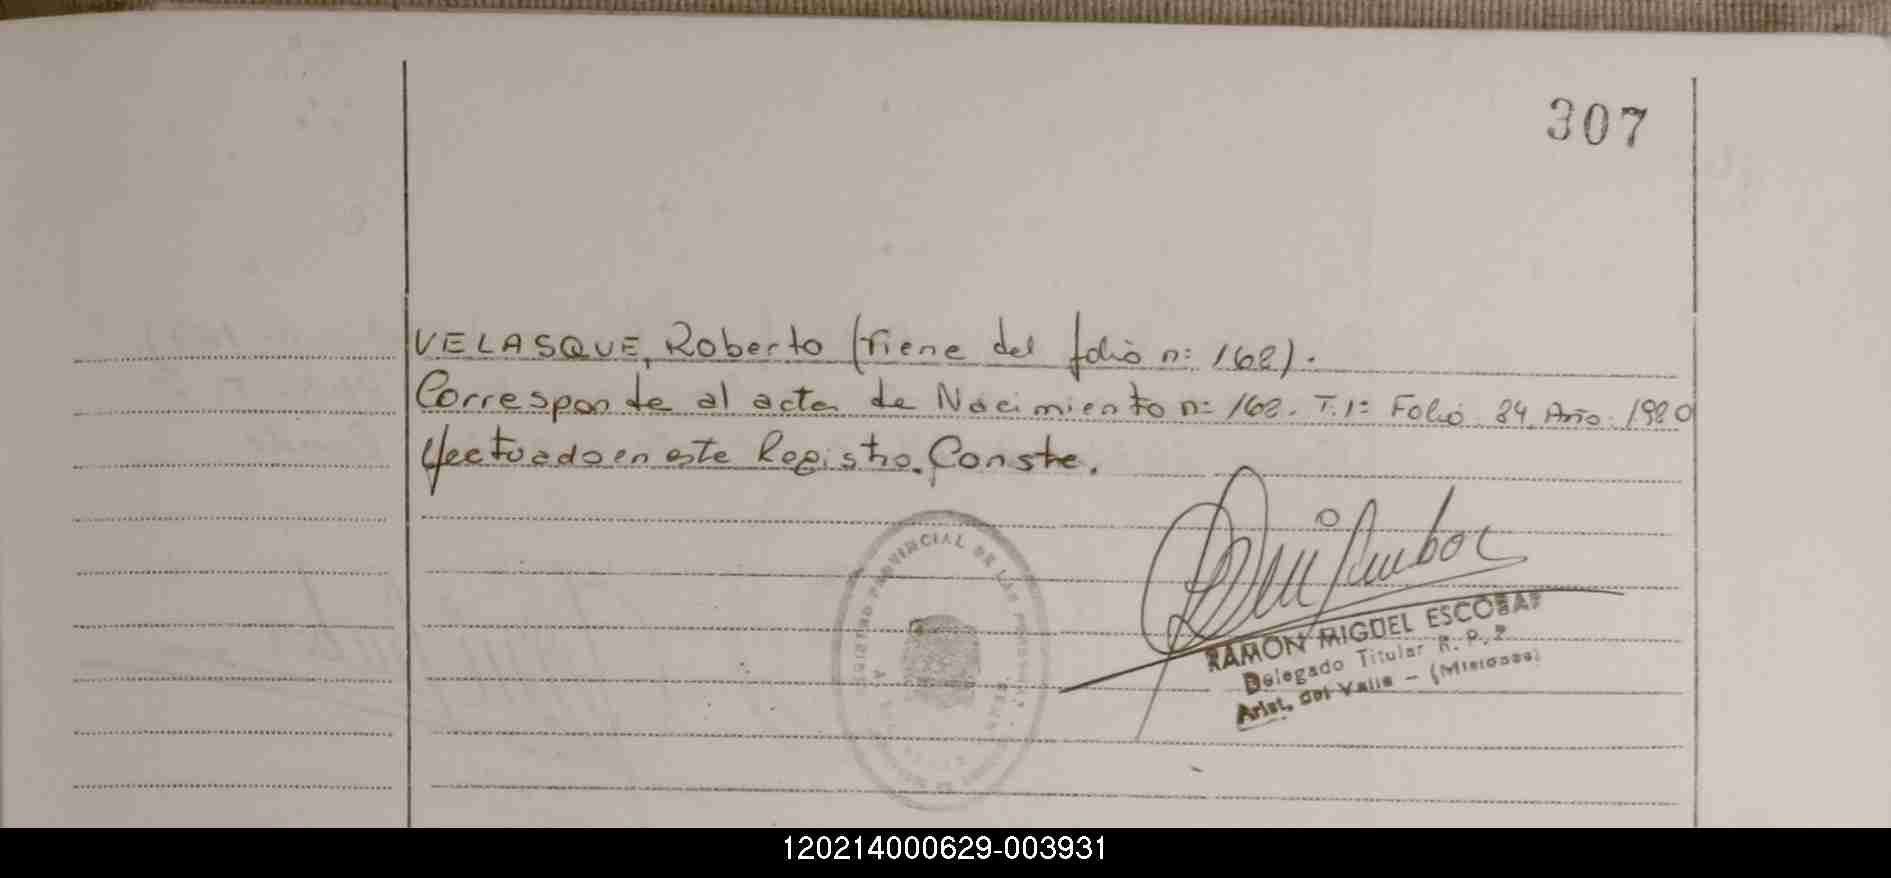 307
VELASQUE, Roberto (Viene del folio n: 168).
Corresponde al acta de Nacimiento n: 168. T. 1: Folio 84 Año. 1980
efectuado en este Registro. Conste.
PROVINCIAL DE LAS
RAMON MIGUEL ESCOBAR
Delegado Titular R. P. P.
Arist. del Valle - (Misiones)
120214000629-003931